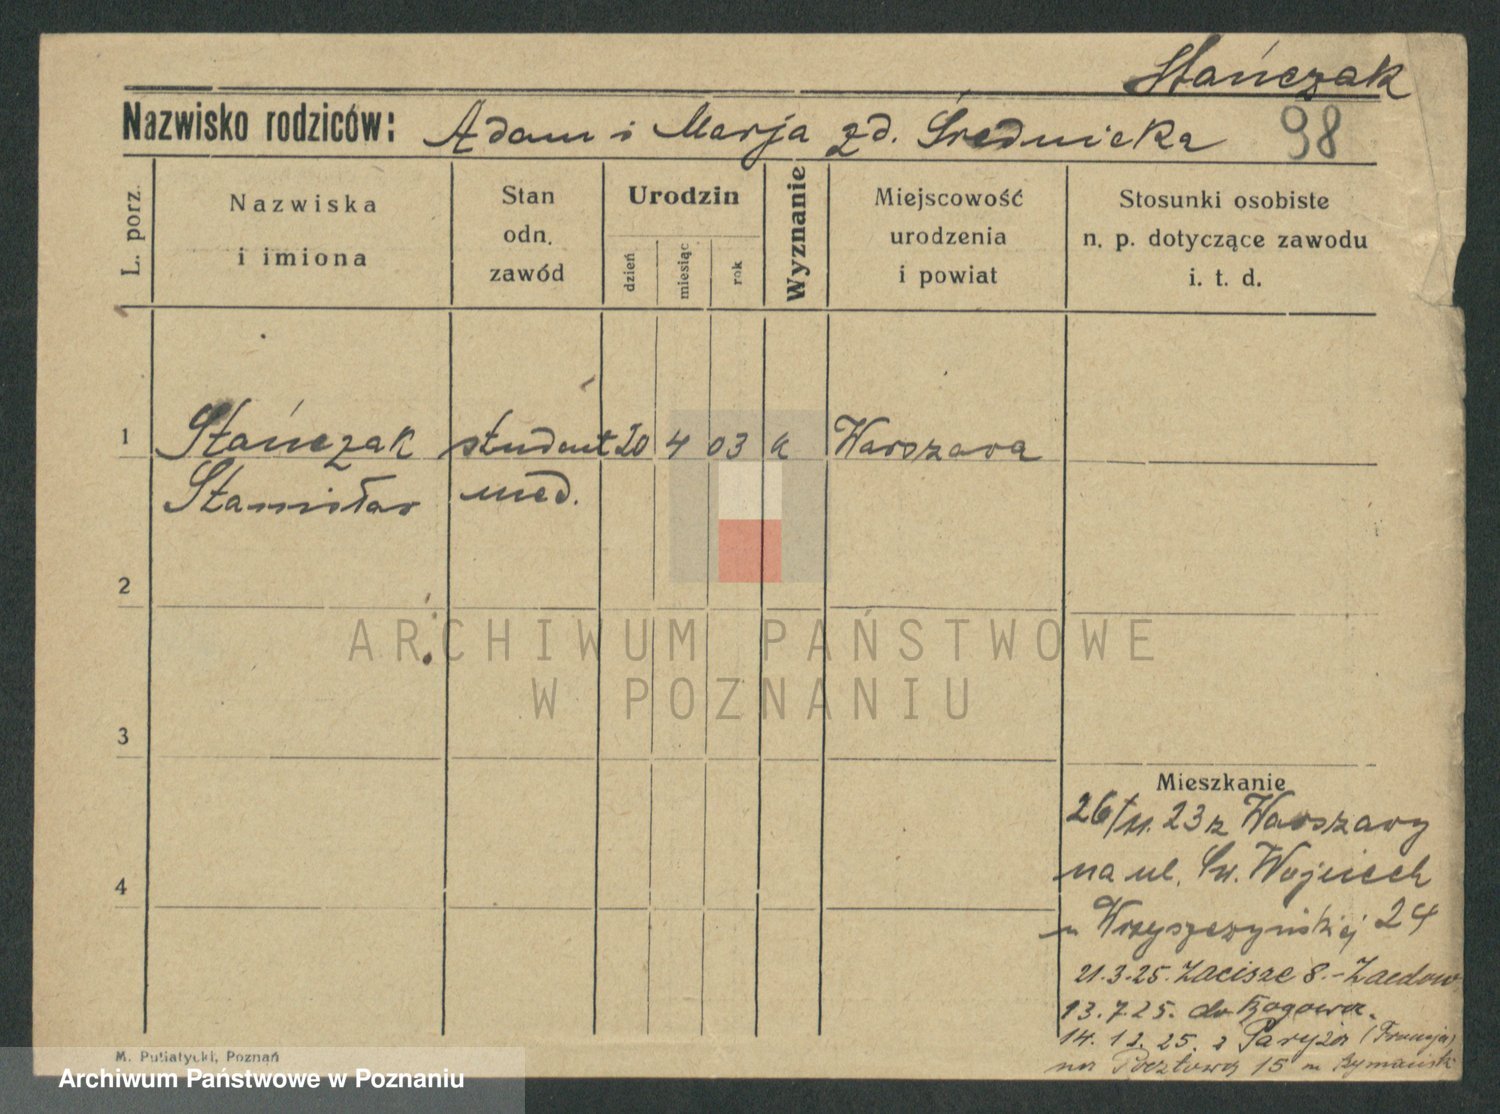 Stańczak
Nazwisko rodziców: Adam i Marja zd. Średnicka 98
L. porz.
Nazwiska
i imiona
Stan
odn.
zawód
Urodzin
dzień
miesiąc
rok
Wyznanie
Miejscowość
urodzenia
i powiat
Stosunki osobiste
n. p. dotyczące zawodu
i. t. d.
1 Stańczak student 20 4 03 k Warszawa
Stanisław med.
2
3
4
ARCHIWUM PAŃSTWOWE
W POZNANIU
Mieszkanie
26/11. 23 z Warszawy
na ul. Św. Wojciech
24
21.3.25. Zacisze 8.-
13.7.25. do Rogowa.
14. 12. 25. z Paryża (Francja)
na Pocztową 15 u
M. Putiatycki, Poznań
Archiwum Państwowe w Poznaniu